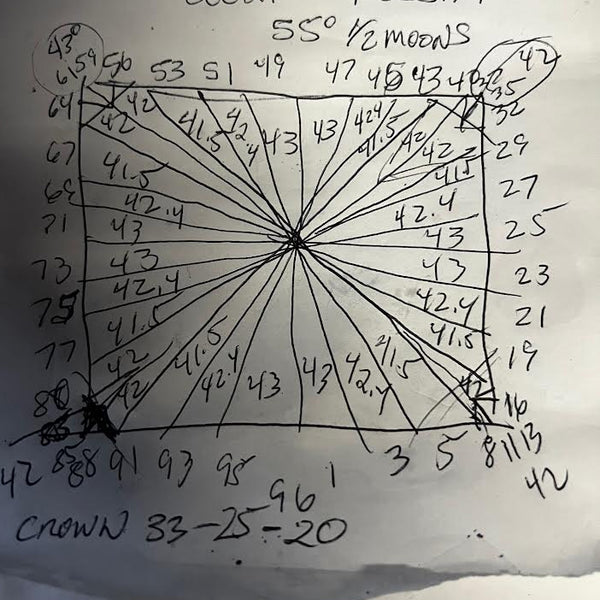 55° 1/2 MOONS
43° 42
61 59 56 53 51 49 47 45 43 40 37 35
64 42 42 41.5 42.4 43 43 42.4 41.5 42 32
67 41.5 42.2 41.5 29
69 42.4 42.4 27
71 43 43 25
73 43 43 23
75 42.4 42.4 21
77 41.5 41.5 19
80 42 42 41.5 42.4 43 43 42.4 41.5 42 16
42 85 88 91 93 95 96 1 3 5 8 11 13 42
CROWN 33-25-20